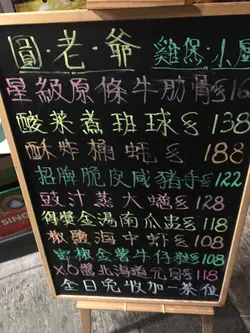 圓·老·爺 雞煲·小屋
星級原條牛肋骨 $16
酸菜煮班球 $138
酥炸桶蠔 $188
招牌脆皮咸豬手 $122
豉汁蒸大鱔 $128
得獎金湯南瓜盅 $118
椒鹽海中蝦 $108
蜜椒金薯牛仔粒 $108
XO醬北海道元貝 $118
全日免收加一茶位
SING